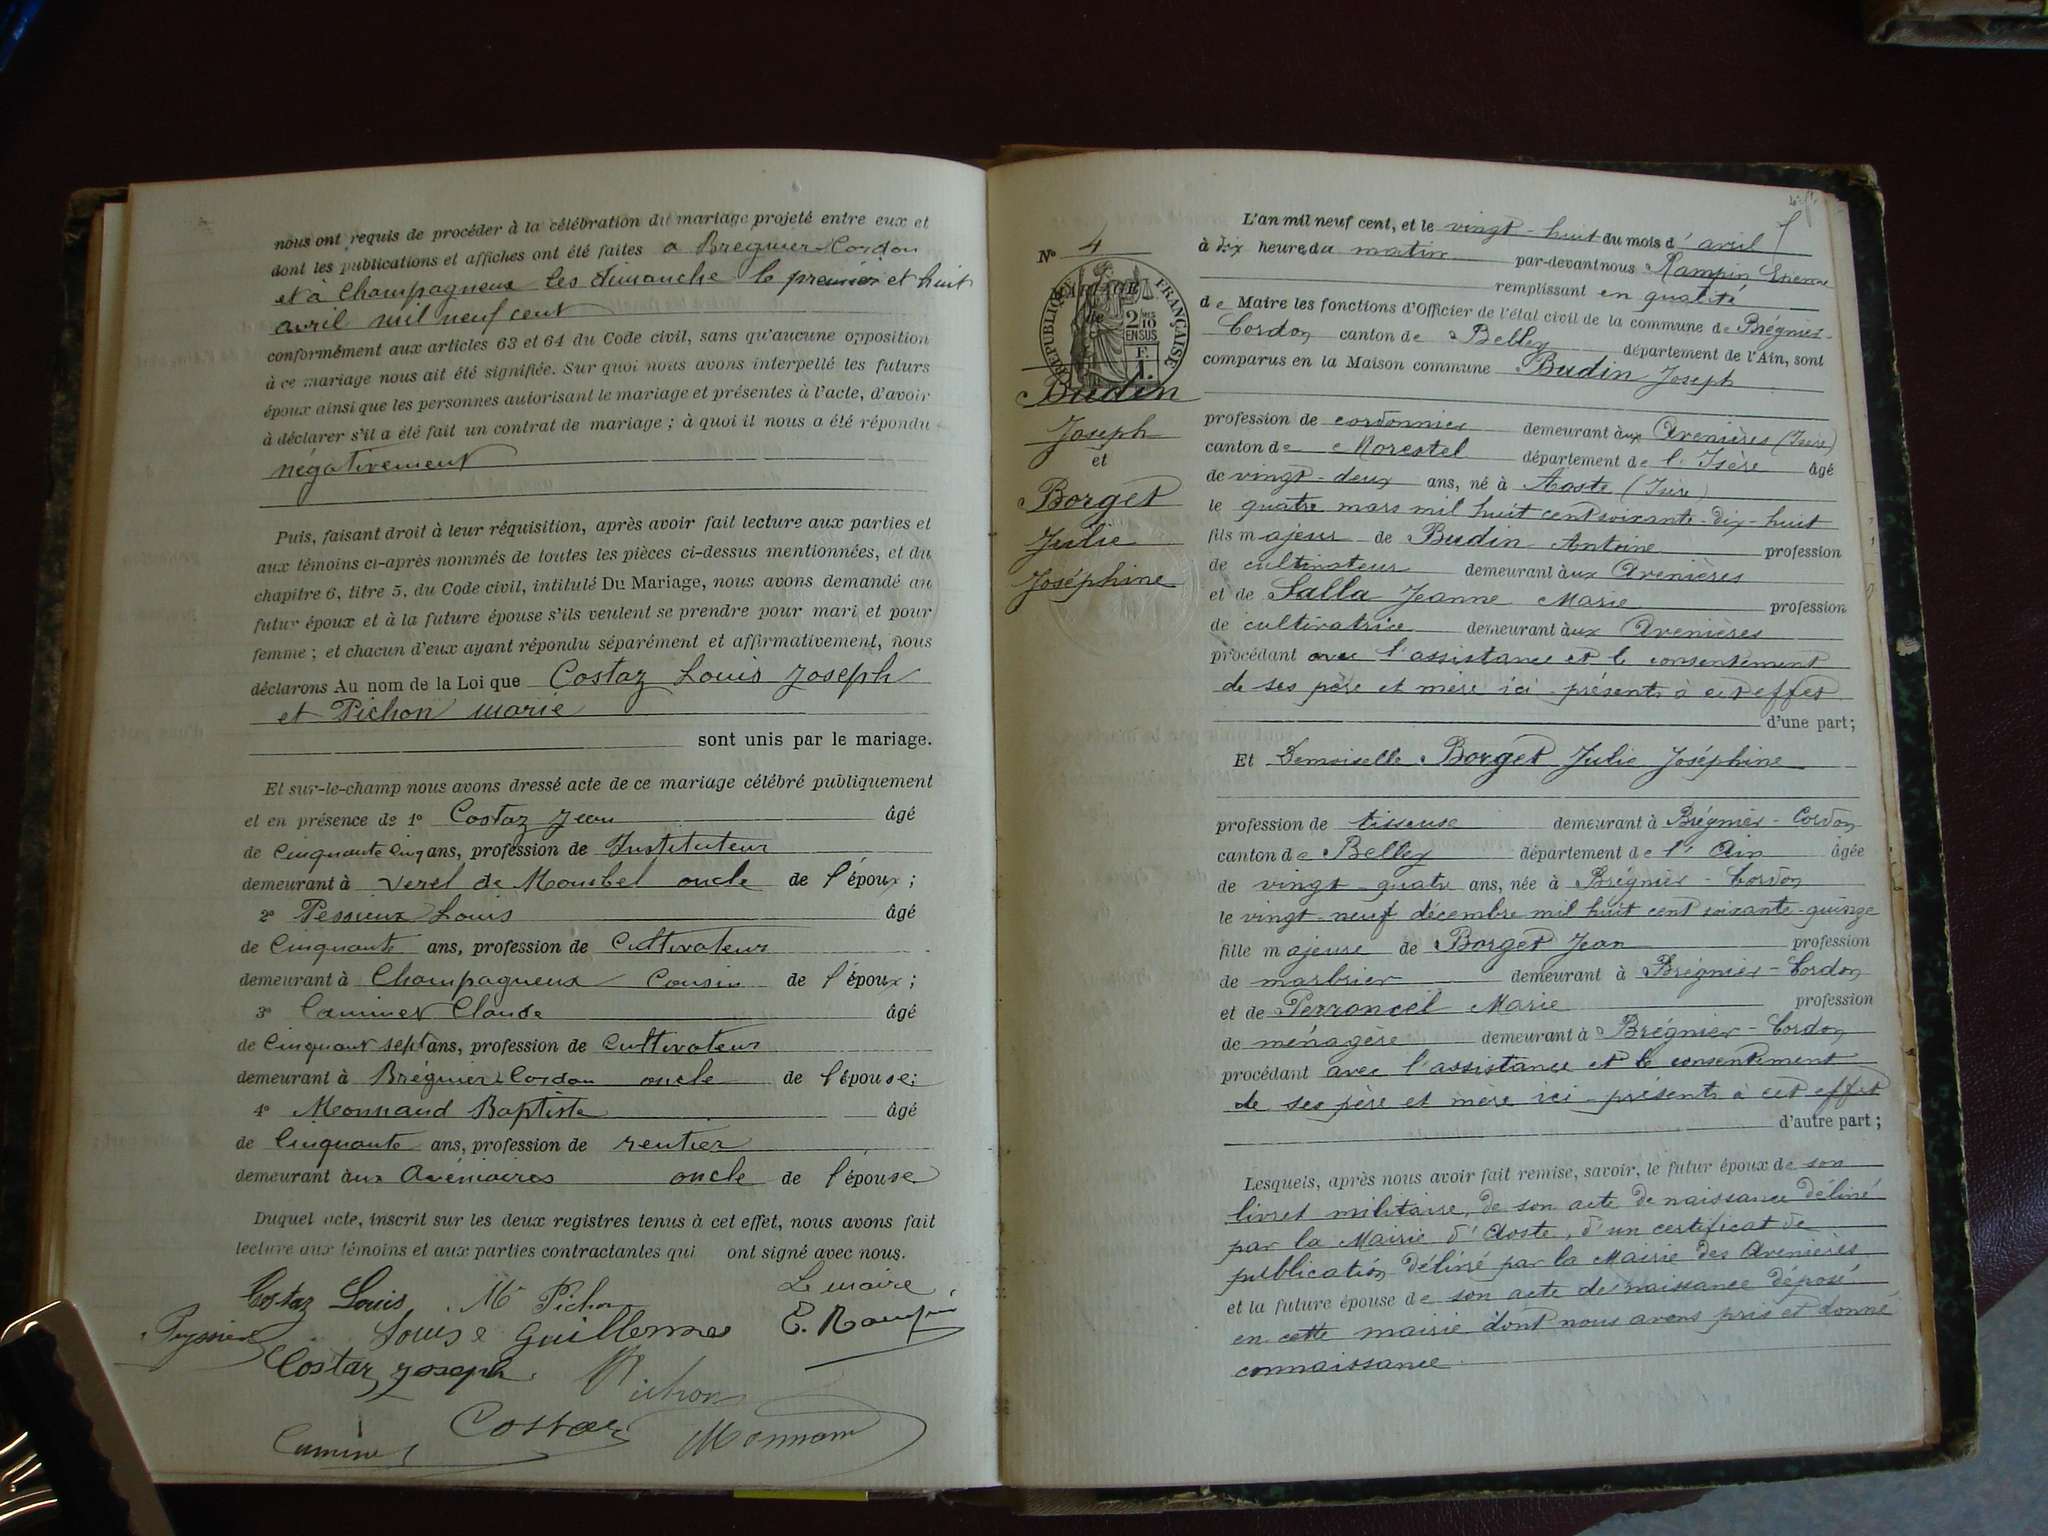 nous ont requis de procéder à la célébration du mariage projeté entre eux et
dont les publications et affiches ont été faites a Brégnier-Cordon
et à Champagneux les dimanche le premier et huit
avril mil neuf cent
conformément aux articles 63 et 64 du Code civil, sans qu'aucune opposition
à ce mariage nous ait été signifiée. Sur quoi nous avons interpellé les futurs
époux ainsi que les personnes autorisant le mariage et présentes à l'acte, d'avoir
à déclarer s'il a été fait un contrat de mariage ; à quoi il nous a été répondu
négativement
Puis, faisant droit à leur réquisition, après avoir fait lecture aux parties et
aux témoins ci-après nommés de toutes les pièces ci-dessus mentionnées, et du
chapitre 6, titre 5, du Code civil, intitulé Du Mariage, nous avons demandé au
futur époux et à la future épouse s'ils veulent se prendre pour mari et pour
femme ; et chacun d'eux ayant répondu séparément et affirmativement, nous
déclarons Au nom de la Loi que Costaz Louis Joseph
et Pichon Marie
sont unis par le mariage.
Et sur-le-champ nous avons dressé acte de ce mariage célébré publiquement
et en présence de 1° Costaz Jean âgé
de Cinquante cinq ans, profession de Instituteur
demeurant à Verel de Montbel oncle de l'époux ;
2° Pessieux Louis âgé
de Cinquante ans, profession de Cultivateur
demeurant à Champagneux Cousin de l'époux ;
3° Caminet Claude âgé
de Cinquant sept ans, profession de Cultivateur
demeurant à Brégnier-Cordon oncle de l'épouse ;
4° Monnaud Baptiste âgé
de Cinquante ans, profession de rentier
demeurant aux Avénières oncle de l'épouse
Duquel acte, inscrit sur les deux registres tenus à cet effet, nous avons fait
lecture aux témoins et aux parties contractantes qui ont signé avec nous.
Costaz Louis Mie Pichon Le maire
Louise Guillerme E. Rampin
Costaz Joseph
Pichon
Costaz
Monnau
N° 4
MARIAGE
RÉPUBLIQUE FRANÇAISE
2/10 EN SUS
Budin
Joseph
et
Borget
Julie
Joséphine
L'an mil neuf cent, et le vingt-huit du mois d'avril
à dix heure du matin par-devant nous Rampin Etienne
remplissant en qualité
de Maire les fonctions d'Officier de l'état civil de la commune de Brégnier-
Cordon canton de Belley département de l'Ain, sont
comparus en la Maison commune Budin Joseph
profession de cordonnier demeurant aux Avenières (Isère)
canton de Morestel département de l'Isère âgé
de vingt-deux ans, né à Aoste (Isère)
le quatre mars mil huit cent soixante-dix-huit
fils majeur de Budin Antoine profession
de cultivateur demeurant aux Avenières
et de Salla Jeanne Marie profession
de cultivatrice demeurant aux Avenières
procédant avec l'assistance et le consentement
de ses père et mère ici présents à cet effet
d'une part ;
Et Demoiselle Borget Julie Joséphine
profession de tisseuse demeurant à Brégnier-Cordon
canton de Belley département de l'Ain âgée
de vingt-quatre ans, née à Brégnier-Cordon
le vingt-neuf décembre mil huit cent soixante-quinze
fille majeure de Borget Jean profession
de marbrier demeurant à Brégnier-Cordon
et de Perroncel Marie profession
de ménagère demeurant à Brégnier-Cordon
procédant avec l'assistance et le consentement
de ses père et mère ici présents à cet effet
d'autre part ;
Lesquels, après nous avoir fait remise, savoir, le futur époux de son
livret militaire, de son acte de naissance délivré
par la Mairie d'Aoste, d'un certificat de
publication délivré par la Mairie des Avenières
et la future épouse de son acte de naissance déposé
en cette mairie dont nous avons pris et donné
connaissance.